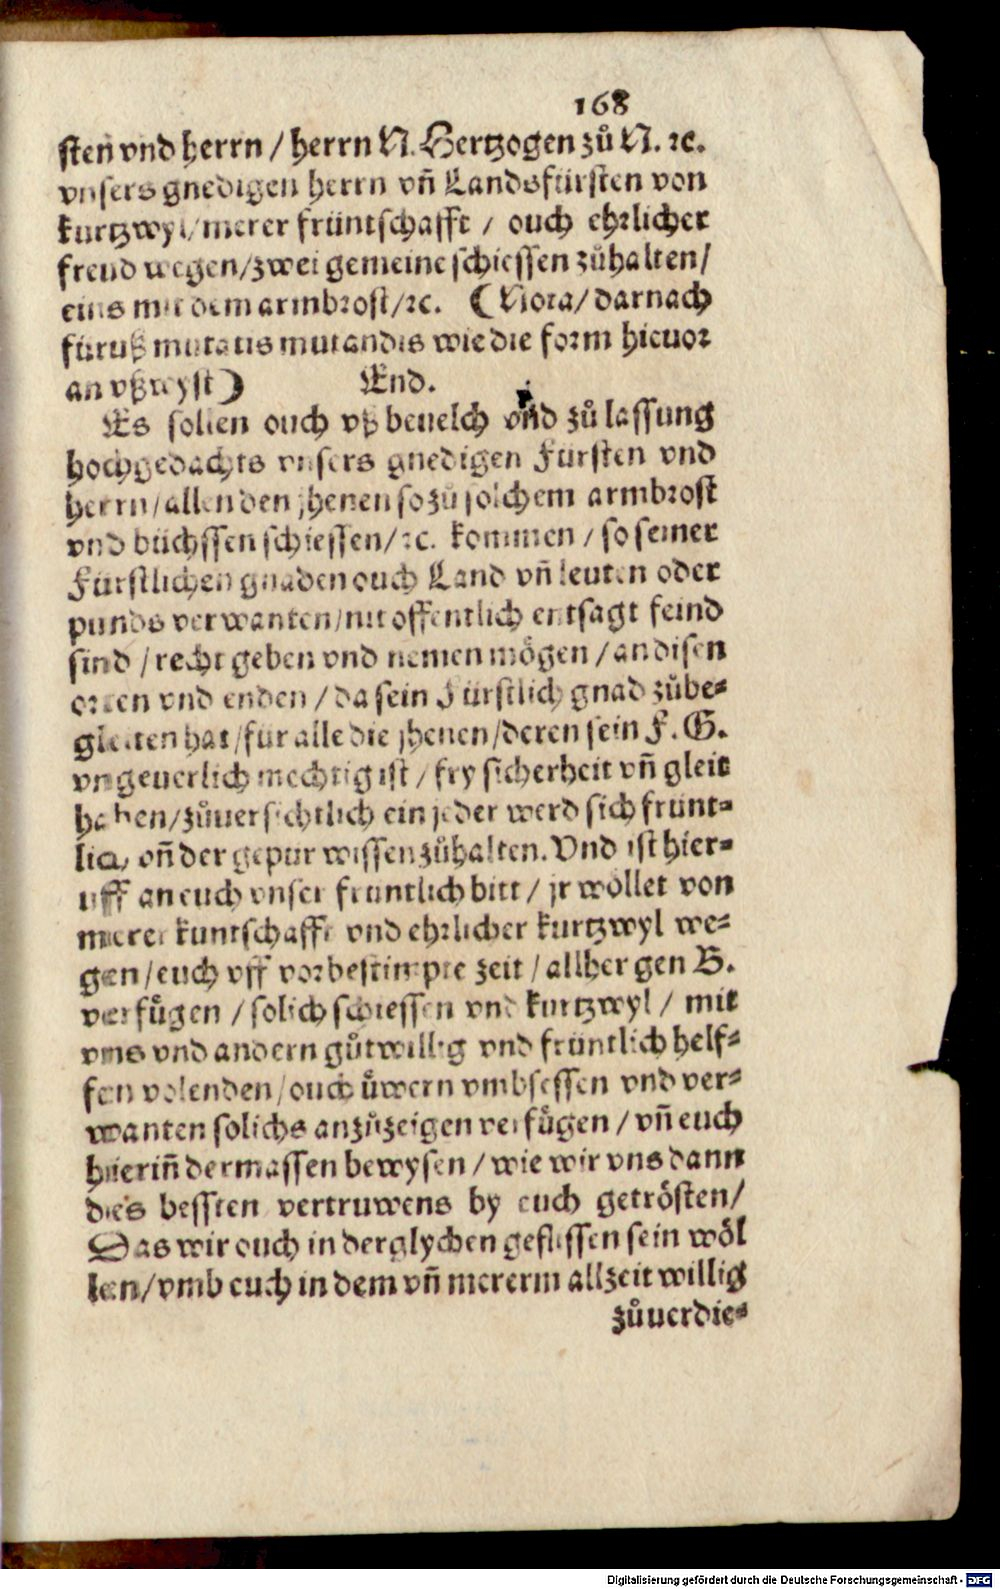 168
sten vnd herrn / herrn N. Hertzogen zů N. ⁊c.
vnsers gnedigen herrn vñ Landsfürsten von
kurtzwyl / merer früntschafft / ouch ehrlicher
freud wegen / zwei gemeine schiessen zůhalten /
eins mit dem armbrost / ⁊c. (Nota / darnach
füruß mutatis mutandis wie die form hieuor
an vßwyst) End.
Es sollen ouch vß beuelch vnd zů lassung
hochgedachts vnsers gnedigen Fürsten vnd
herrn / allen den jhenen so zů solchem armbrost
vnd büchssen schiessen / ⁊c. kommen / so seiner
Fürstlichen gnaden ouch Land vñ leuten oder
punds verwanten / nit offentlich entsagt feind
sind / recht geben vnd nemen mögen / an disen
orten vnd enden / da sein Fürstlich gnad zůbe⸗
gleiten hat / für alle die jhenen / deren sein F. G.
vngeuerlich mechtig ist / fry sicherheit vñ gleit
haben / zůuersichtlich ein jeder werd sich frünt⸗
lich vñ der gepür wissen zůhalten. Vnd ist hier⸗
uff an euch vnser früntlich bitt / jr wöllet von
merer kuntschafft vnd ehrlicher kurtzwyl we⸗
gen / euch vff vorbestimpte zeit / allher gen B.
verfügen / solich schiessen vnd kurtzwyl / mit
vns vnd andern gůtwillig vnd früntlich helf⸗
fen volenden / ouch üwern vmbsessen vnd ver⸗
wanten solichs anzůzeigen verfügen / vñ euch
hierin̄ dermassen bewysen / wie wir vns dann
des bessten vertruwens by euch getrösten /
Das wir ouch in derglychen geflissen sein wöl
len / vmb euch in dem vñ mererm allzeit willig
zůuerdie⸗
Digitalisierung gefördert durch die Deutsche Forschungsgemeinschaft - DFG